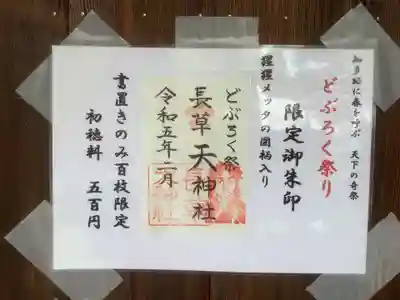 知多路に春を呼ぶ 天下の奇祭
どぶろく祭り
限定御朱印
猩猩メッタの図柄入り
どぶろく祭
長草天神社
令和五年二月
書置きのみ百枚限定
初穂料 五百円